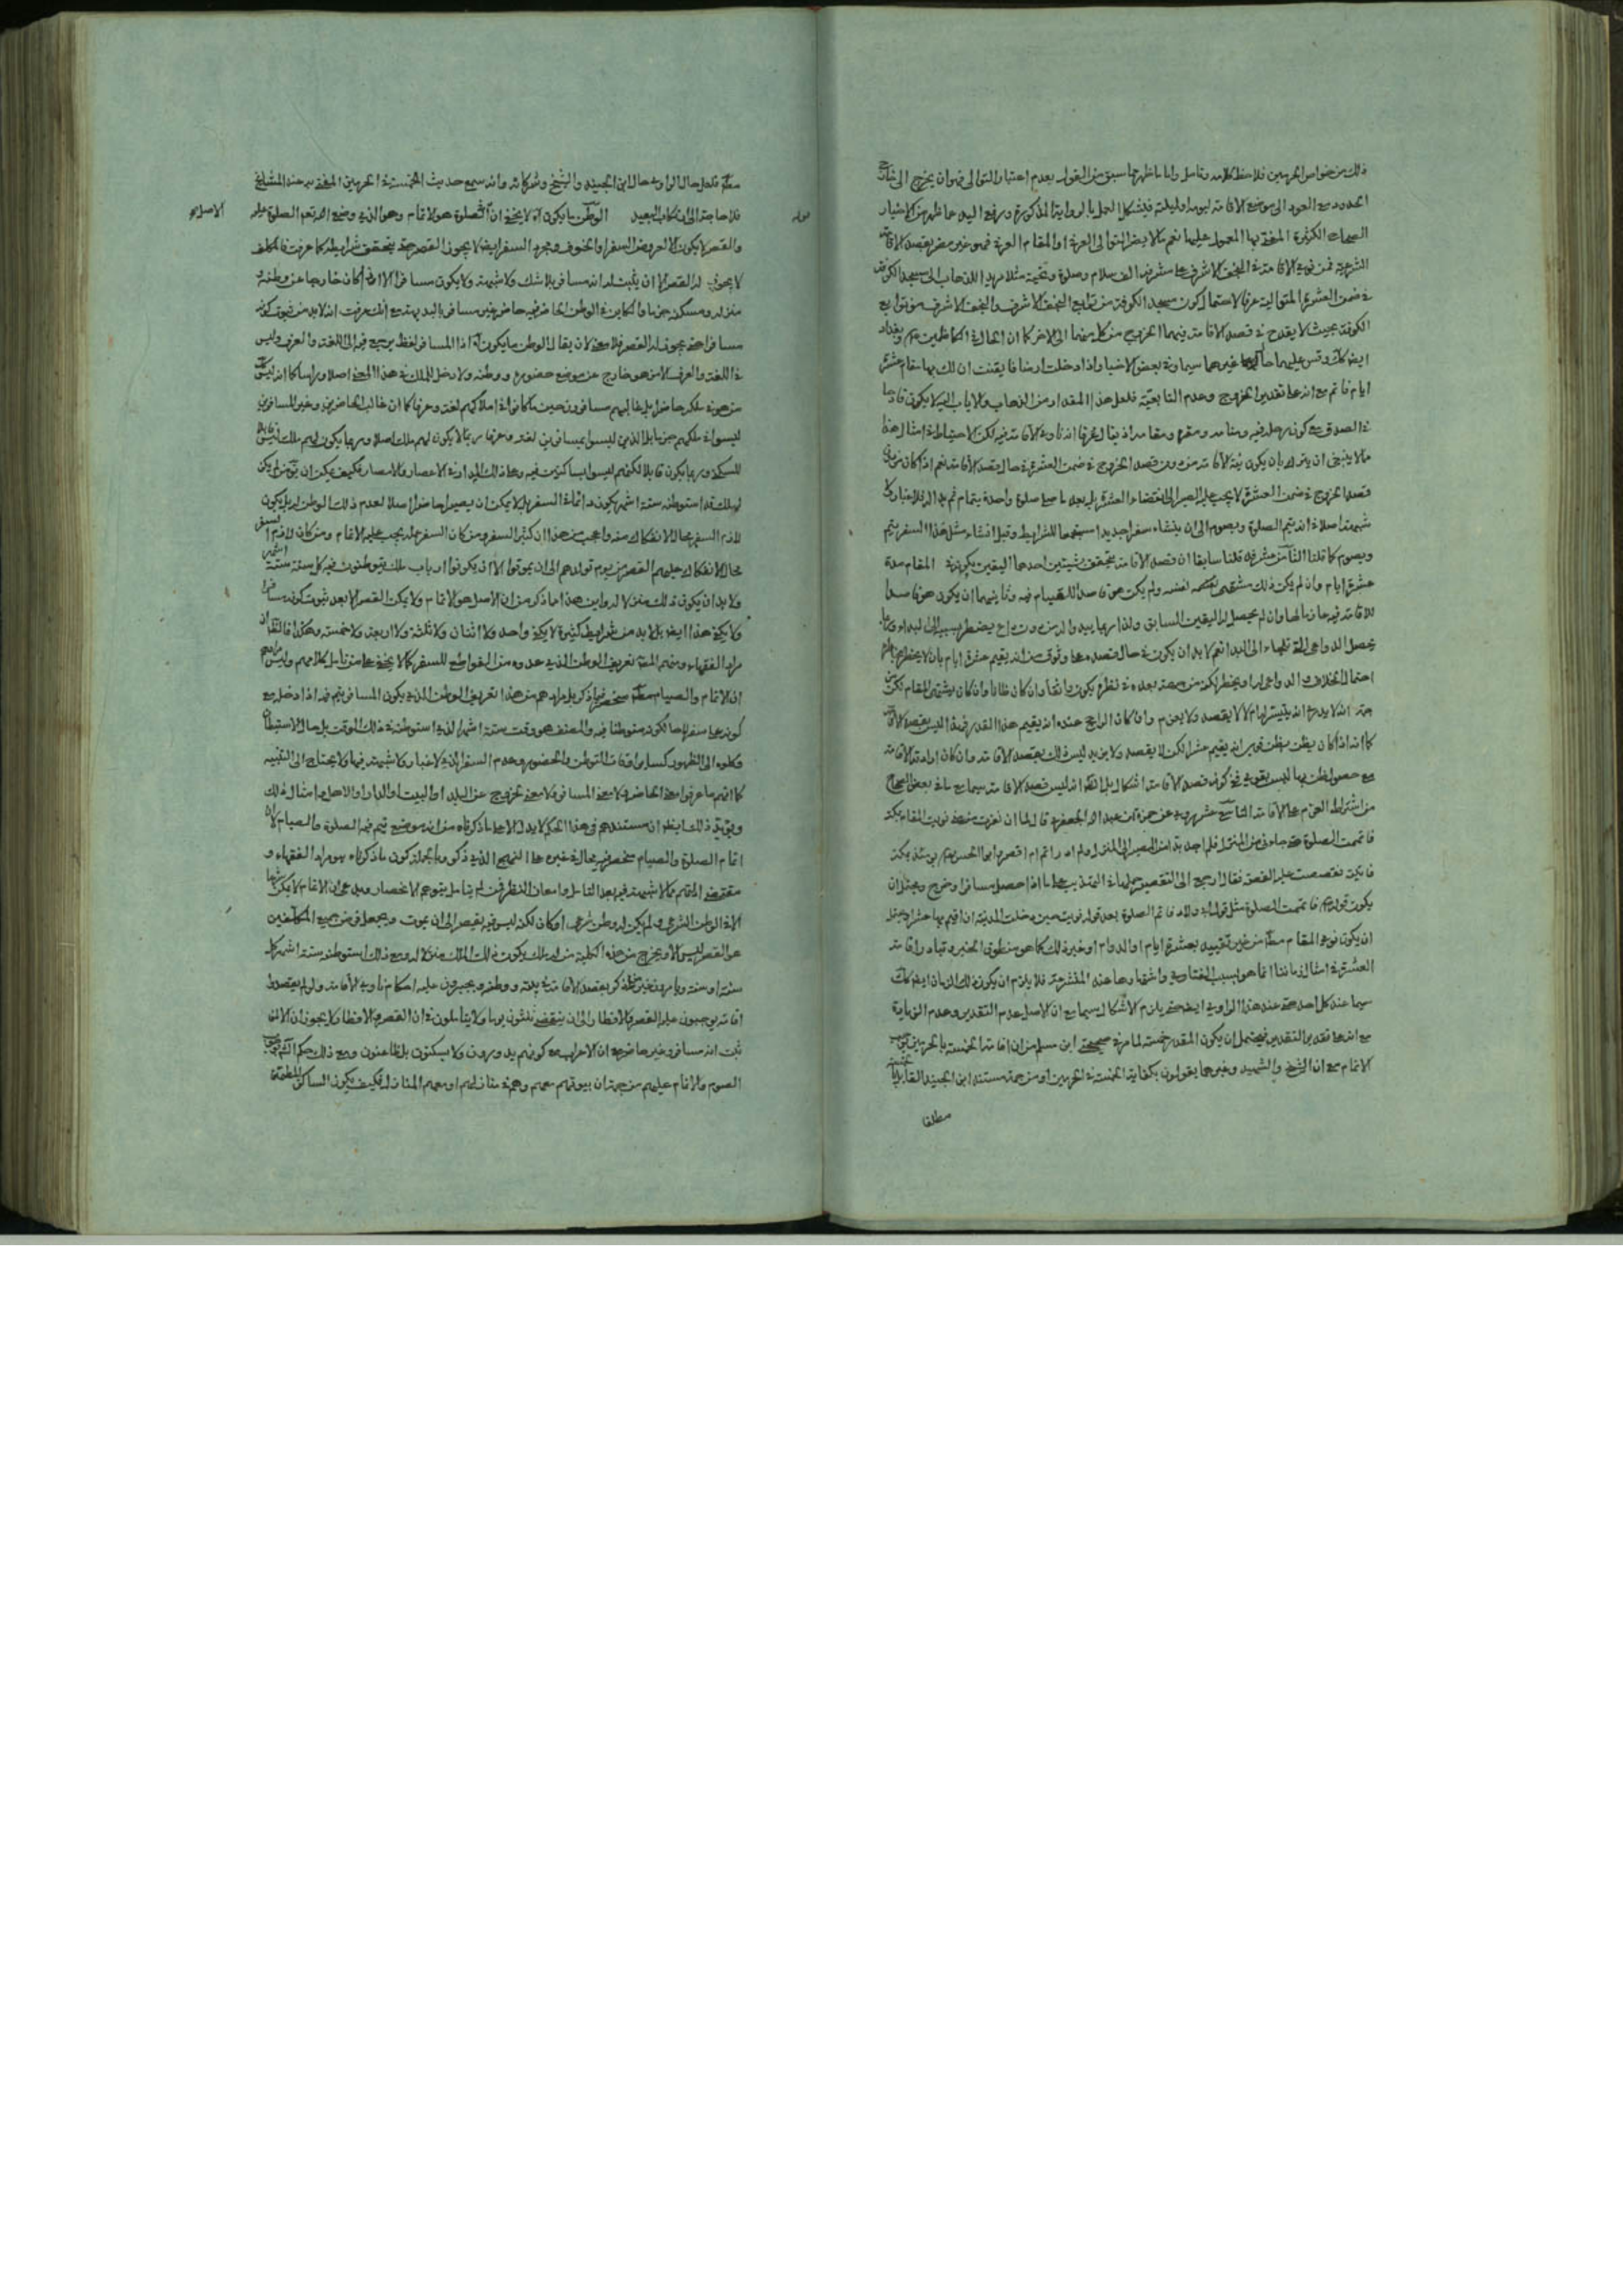 ذلك من خواص الحرمين فلاحظ كلامه وتأمل واما ما ظهر مما سبق من القول بعدم اعتبار التوالى فهو ان يخرج الى
الحدود مع العود الى موضع الاقامة ليومه او ليلته فيشكل العمل بالرواية المذكورة ورفع اليد عما ظهر من الاخبار
الصحاح الكثيرة المفتى بها المعمول عليها نعم ما لا يضر التوالى العرفى او المقام العرفى فهو غير مضر بقصد الاقامة
الشرعية فمن نوى الاقامة فى النجف الاشرف على مشرفه الف سلام وصلوة وتحية مثلا مريد الذهاب الى مسجد الكوفة
فى ضمن العشرة المتوالية عرفا لاحتمال كون مسجد الكوفة من توابع النجف الاشرف والنجف الاشرف من توابع
الكوفة بحيث لا يقدح فى قصد الاقامة فيهما الخروج من كل منهما الى الاخر كما ان الحال فى الكاظمين وبغداد
ايضا كك وقس عليهما حال غيرهما سيما وفى بعض الاخبار اذا دخلت ارضا فايقنت ان لك بها مقام عشرة
ايام فاتم مع انه على تقدير الخروج وعدم التابعية فلعل هذا المقدار من الذهاب والاياب اليه لا يكون قادحا
فى الصدق مع كون رحله فيه ومنامه ومقره ومقامه اذ يقال عرفا انه ناوى الاقامة فيه لكن الاحتياط فى امثال هذا
مما لا ينبغى ان يترك بان يكون نية الاقامة من دون قصد الخروج فى ضمن العشرة فى حال قصد الاقامة نعم اذا كان
قصد الخروج فى ضمن العشرة لا يجب عليه الصبر الى انقضاء العشرة بل بعد ما صلى صلوة واحدة بتمام ثم بدا له فلا غبار ولا
شبهة اصلا فى انه يتم الصلوة ويصوم الى ان ينشاء سفرا جديدا مستجمعا للشرايط وقبل انشاء مثل هذا السفر يتم
ويصوم كما قلنا الثامن عشر قد قلنا سابقا ان قصد الاقامة يتحقق بشيئين احدهما اليقين بكونه فى المقام مدة
عشرة ايام وان لم يكن ذلك مشتهى نفسه ولم يكن هو قاصدا للقيام فيه وثانيهما ان يكون هو قاصدا
للاقامة فيه جازما لها وان لم يحصل له اليقين السابق ولذا ربما يبدو له من دون داع يضطر بسببه الى البداء وربما
يحصل الدواعى الى البدا نعم لا بد ان يكون فى حال قصده على وثوق من انه يقيم عشرة ايام بان لا يخطر بباله
احتمال الخلاف والدواعى له او يخطر لكنه من جهة بعده فى نظره يكون واثقا وان كان ظانا وان كان يشتهى المقام لكن
حتى انه لا يدرى انه يتيسر له ام لا لا يقصد ولا يعزم وان كان الراجح عنده انه يقيم هذا القدر فهذا ليس بقصد الاقامة
كما انه اذا كان يظن بظن قوى انه يقيم عشرا لكن لا يقصد ولا يريد ليس ذلك بقصد الاقامة وان كان ارادة الاقامة
مع حصول ظن بها ليس بقوى ففى كونه قصد الاقامة اشكال بل الظ انه ليس قصد الاقامة سيما مع ما فى بعض الصحاح
من اشتراط العزم على الاقامة التاسع عشر روى عن حمزة بن عبد الله الجعفرى قال لما ان نفرت من منى نويت المقام بمكة
فاتممت الصلوة حتى جاءنى من المنزل فلم اجد بدا من المصير الى المنزل ولم ادر اتم ام اقصر وابو الحسن يومئذ بمكة
فاتيته فقصصت عليه القصة فقال ارجع الى التقصير حملها فى التهذيب على ما اذا حصل مسافرا وخرج ويحتمل ان
يكون قوله فاتممت الصلوة مثل قوله فى ولاد فاتم الصلوة بعد قوله نويت حين دخلت المدينة ان اقيم بها عشرا ويحتمل
ان يكون نوى المقام مطلقا من غير تقييده بعشرة ايام او الدوام او غير ذلك كما هو منطوق الخبر وتبادر اقامة
العشرة فى امثال زماننا انما هو بسبب الفتاوى واشتهارها عند المتشرعة فلا يلزم ان يكون ذلك الزمان ايضا كك
سيما عند كل احد حتى عند هذا الراوى ايضا حتى يلزم الاشكال سيما مع ان الاصل عدم التقدير وعدم الزيادة
مع انه على تقدير التقدير فيحتمل ان يكون المقدر خمسة لما مر فى صحيحة ابن مسلم من ان اقامة الخمسة بالحرمين
الاتمام مع ان الشيخ والشهيد وغيرهما يقولون بكفاية الخمسة فى الحرمين او من جهة مستند ابن الجنيد القائل
مطلقا
مطلقا فلعل حال الراوى حال ابن الجنيد والشيخ وشركائه وانه سمع حديث الخمسة فى الحرمين المفتى به عند المشايخ
فلا حاجة الى ارتكاب البعيد قوله الوطن ما يكون آه لا يخفى ان الاصل فى الصلوة هو الاتمام وهو الذى وضع الله تعالى الصلوة عليه
والقصر لا يكون الا لعروض السفر او الخوف ومجرد السفر ايضا لا يجوز القصر حتى يتحقق شرايطه كما عرفت فالمكلف
لا يجوز له القصر الا ان يثبت له انه مسافر بلا شك ولا شبهة ولا يكون مسافرا الا اذا كان خارجا عن وطنه و
منزله ومسكنه جزما والكاين فى الوطن الحاضر فيه حاضر غير مسافر بالبديهة مع انك عرفت انه لا بد من ثبوت كونه
مسافرا حتى يجوز له القصر فلا معنى لان يقال الوطن ما يكون آه اذ المسافر لفظ يرجع فيه الى اللغة والعرف وليس
فى اللغة والعرف الا من هو خارج عن موضع حضوره ووطنه ولا دخل للملك فى هذا المعنى اصلا وراسا كما انه ليس كل
من هو فى ملكه حاضرا بل غالبهم مسافرون حين ما كانوا فى املاكهم لغة وعرفا كما ان غالب الحاضرين وغير المسافرين
ليسوا فى ملكهم جزما بل الذين ليسوا بمسافرين لغة وعرفا ربما لا يكون لهم ملك اصلا وربما يكون لهم ملك ليس قابلا
للسكنى وربما يكون قابلا لكنهم ليسوا بساكنين فيه وعلى ذلك المدار فى الاعصار والامصار فكيف يمكن ان يق من لم يكن
له ملك قد استوطنه ستة اشهر يكون دائما فى السفر بل لا يمكن ان يصير حاضرا اصلا لعدم ذلك الوطن له بل يكون
لازم السفر محال الانفكاك عنه واعجب من هذا ان كثير السفر ومن كان السفر عمله يجب عليه الاتمام ومن كان لازم السفر
محال الانفكاك عليهم القصر من يوم تولدهم الى ان يموتوا الا ان يكونوا ارباب ملك يتوطنون فيه كل سنة ستة اشهر
ولا بد ان يكون ذلك منزلا له واين هذا مما ذكر من ان الاصل هو الاتمام ولا يمكن القصر الا بعد ثبوت كونه مسافرا
ولا يكفى هذا ايضا بل لا بد من شرايط كثيرة لا يكفى واحد ولا اثنان ولا ثلثة ولا اربعة ولا خمسة وهكذا فالظ ان
مراد الفقهاء ومنهم المصنف تعريف الوطن الذى عدوه من القواطع للسفر كما لا يخفى على من تأمل كلامهم وليس مرادهم
ان الاتمام والصيام مطلقا منحصر فيما ذكر بل مرادهم من هذا تعريف الوطن الذى يكون المسافر يتم فيه اذا دخله مع
كونه على سفره لا لكونه متوطنا فيه والمصنف هو وقت ستة اشهر الذى استوطنه فى ذلك الوقت بل حال الاستيطان
وكلوه الى الظهور كساير اوقات التوطن والحضور وعدم السفر الذى لا غبار ولا شبهة فيها ولا يحتاج الى التنبيه
كما انهم ما عرفوا معنى الحاضر ولا معنى المسافر ولا معنى الخروج عن البلد او البيت او الدار او الاهل وامثال ذلك
ويؤيد ذلك ايضا ان مستندهم فى هذا الحكم لا يدل الا على ما ذكرناه من انه موضع يتم فيه الصلوة والصيام لا ان
اتمام الصلوة والصيام منحصر فيه بحال فى غيره على النهج الذى ذكر وبالجملة كون ما ذكرناه هو مراد الفقهاء و
مقتضى المقام مما لا شبهة فيه بعد التامل وامعان النظر فمن لم يتامل يتوهم الانحصار ويدعى ان الاتمام لا يكون
الا فى الوطن الشرعى ولم يكن له وطن شرعى او كان لكنه ليس فيه يقصر الى ان يموت ويجعل فرض جميع المكلفين
هو القصر ليس الا ويخرج من هذه الكلية من له ملك يكون ذلك الملك منزلا له ومع ذلك استوطنه ستة اشهر كل
سنة او سنة ويامرون غير من ذكر بقصد الاقامة فى بلده ووطنه ويجرون عليه احكام ناوى الاقامة ولو لم يقصد
اقامة يوجبون عليه القصر والافطار الى ان ينقضى ثلثون يوما ولا يتاملون فى ان القصر والافطار لا يجوز ان الا لمن
ثبت انه مسافر وغير حاضر مع ان الاعراب مع كونهم يدورون ولا يسكنون بل ظاعنون ومع ذلك حكم
الصوم والاتمام عليهم من جهة ان بيوتهم معهم وهم فى منازلهم او معهم المنازل فكيف يكون الساكن